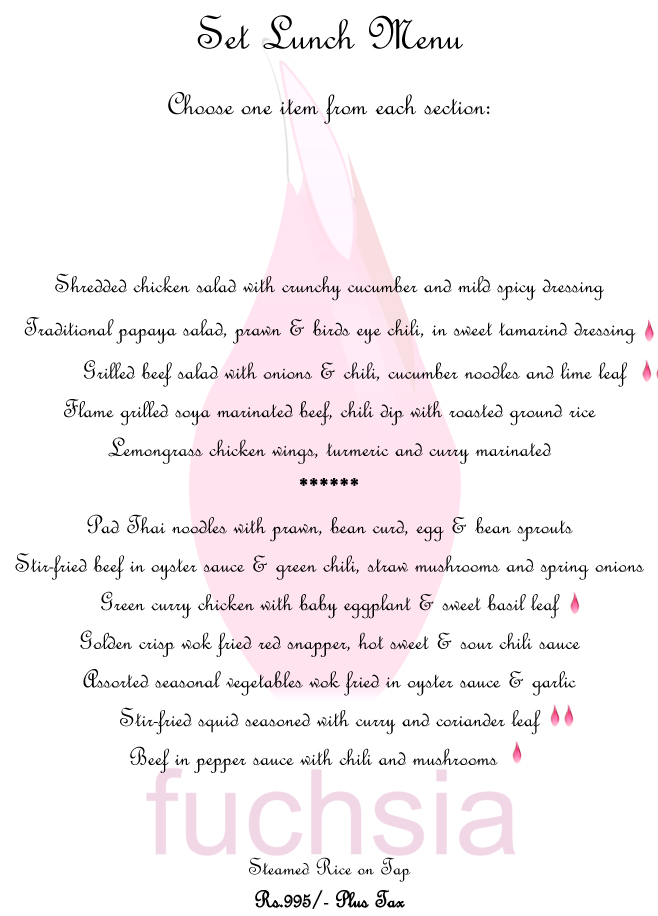 Set Lunch Menu
Choose one item from each section:
Shredded chicken salad with crunchy cucumber and mild spicy dressing
Traditional papaya salad, prawn & birds eye chili, in sweet tamarind dressing
Grilled beef salad with onions & chili, cucumber noodles and lime leaf
Flame grilled soya marinated beef, chili dip with roasted ground rice
Lemongrass chicken wings, turmeric and curry marinated
******
Pad Thai noodles with prawn, bean curd, egg & bean sprouts
Stir-fried beef in oyster sauce & green chili, straw mushrooms and spring onions
Green curry chicken with baby eggplant & sweet basil leaf
Golden crisp wok fried red snapper, hot sweet & sour chili sauce
Assorted seasonal vegetables wok fried in oyster sauce & garlic
Stir-fried squid seasoned with curry and coriander leaf
Beef in pepper sauce with chili and mushrooms
fuchsia
Steamed Rice on Tap
Rs.995/- Plus Tax